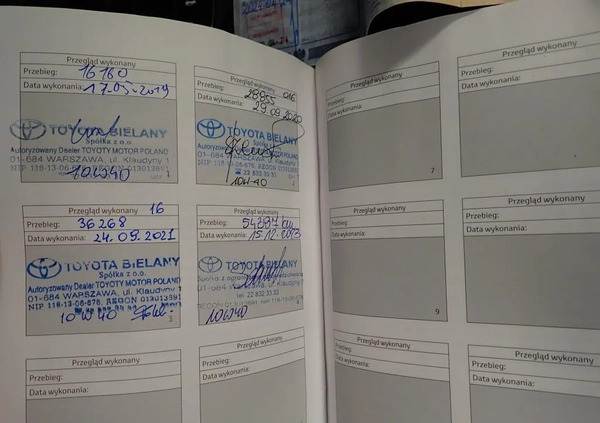 Przegląd wykonany
Przebieg: 16160
Data wykonania: 17.05.2019
TOYOTA BIELANY
Spółka z o.o.
Autoryzowany Dealer TOYOTY MOTOR POLAND
01-684 WARSZAWA, ul. Klaudyny
10W40
1
Przegląd wykonany
Przebieg: 28955 016
Data wykonania: 29.09.2020
TOYOTA BIELANY
Spółka z o.o.
Autoryzowany Dealer TOYOTY MOTOR POLAND
01-684 WARSZAWA, ul. Klaudyny
☎ 22 832 33 31
10W-40
2
Przegląd wykonany 16
Przebieg: 36268
Data wykonania: 24.09.2021
TOYOTA BIELANY
Spółka z o.o.
Autoryzowany Dealer TOYOTY MOTOR POLAND
01-684 WARSZAWA, ul. Klaudyny
NIP 118-13-06-676, REGON 013013891
10W40
3
Przegląd wykonany
Przebieg: 54387 km
Data wykonania: 15.12.
TOYOTA BIELANY
01-684 WARSZAWA, ul. Klaudyny
tel. 22 832 33 31
10W40
4
Przegląd wykonany
Przebieg:
Data wykonania:
Przegląd wykonany
Przebieg:
Data wykonania:
Przegląd wykonany
Przebieg:
Data wykonania:
7
Przegląd wykonany
Przebieg:
Data wykonania:
Przegląd wykonany
Przebieg:
Data wykonania:
9
Przegląd wykonany
Przebieg:
Data wykonania:
Przegląd wykonany
Przebieg:
Data wykonania:
Przegląd wykonany
Przebieg:
Data wykonania: